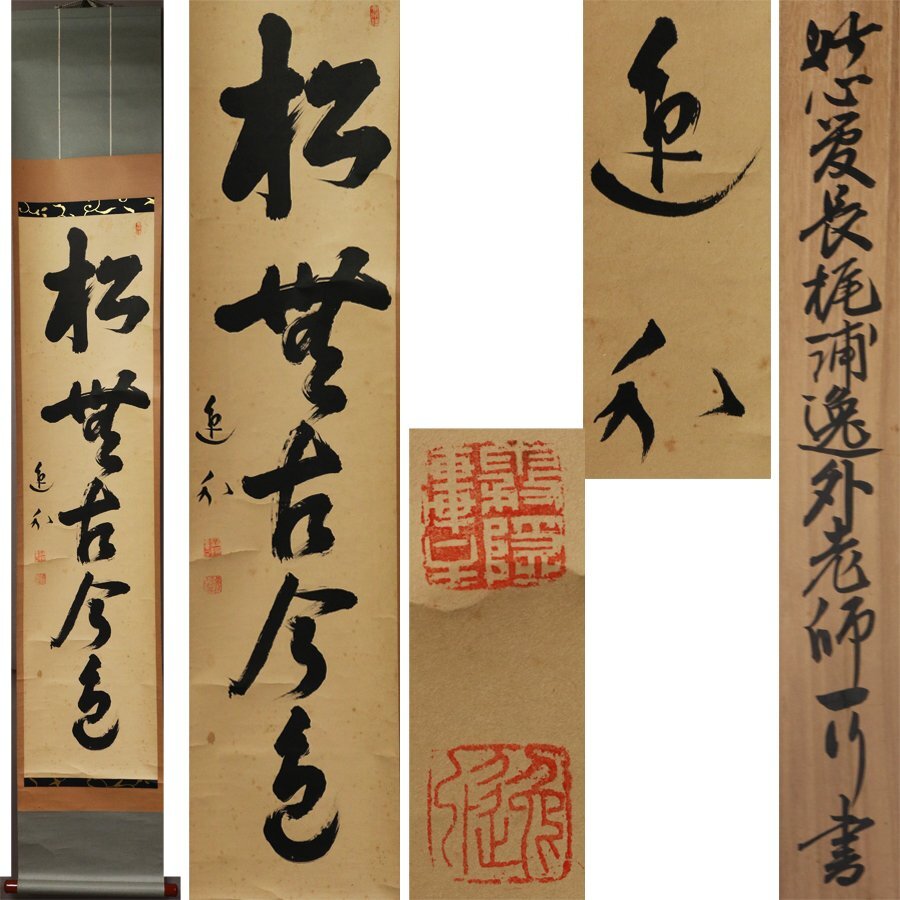 松無古今色
逸外
松無古今色
逸外
逸外
妙心管長梶浦逸外老師一行書